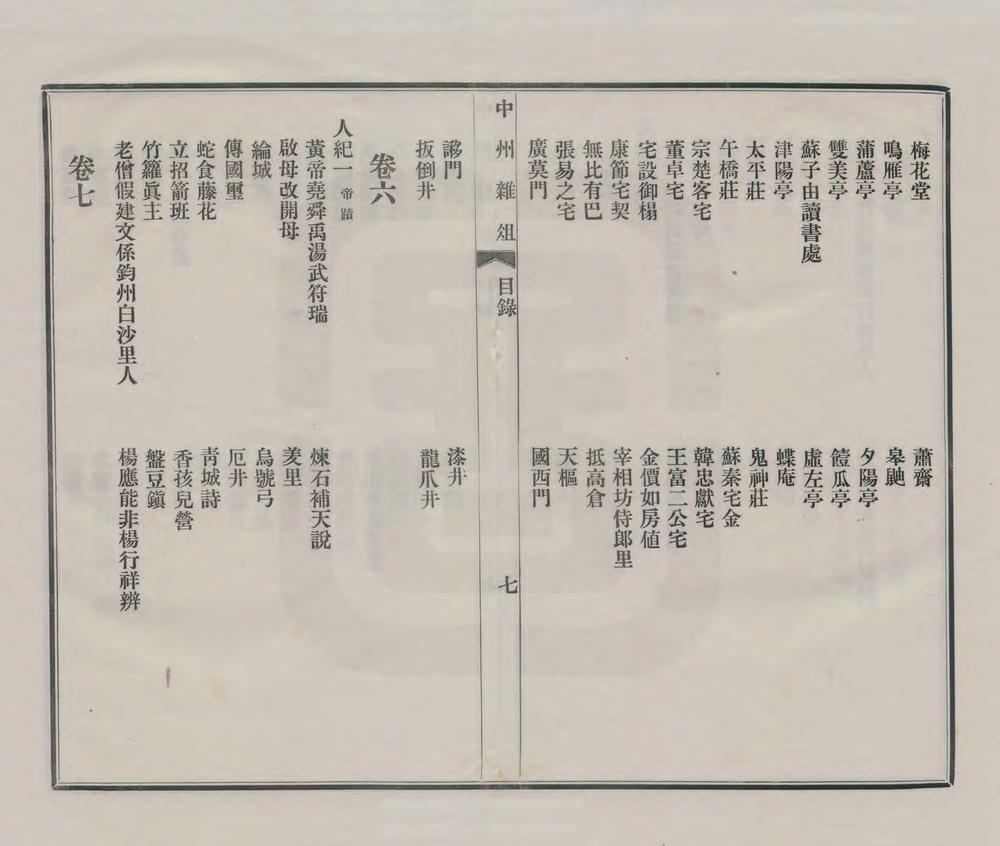 梅花堂 蕭齋
鳴雁亭 皋鼬
蒲蘆亭 夕陽亭
雙美亭 饐瓜亭
蘇子由讀書處 虛左亭
津陽亭 蝶庵
太平莊 鬼神莊
午橋莊 蘇秦宅金
宗楚客宅 韓忠獻宅
董卓宅 王富二公宅
宅設御榻 金價如房値
康節宅契 宰相坊侍郎里
無比有巴 抵高倉
張易之宅 天樞
廣莫門 國西門
中州雜俎 目錄 七
謻門 漆井
扳倒井 龍爪井
卷六
人紀一 帝蹟
黃帝堯舜禹湯武符瑞 煉石補天說
啟母改開母 羑里
綸城 烏號弓
傳國璽 厄井
蛇食藤花 靑城詩
立招箭班 香孩兒營
竹籮眞主 盤豆鎭
老僧假建文係鈞州白沙里人 楊應能非楊行祥辨
卷七